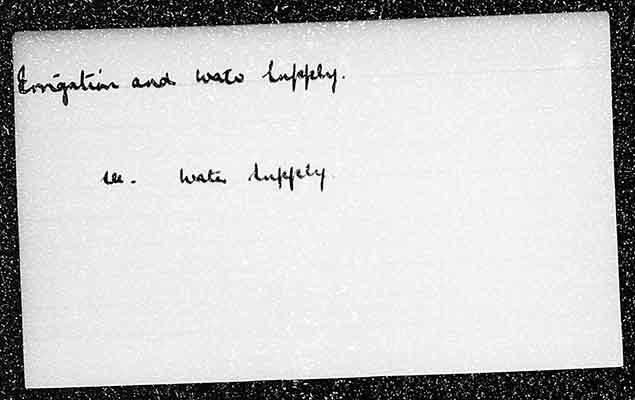 Irrigation and Water Supply.
see. Water Supply